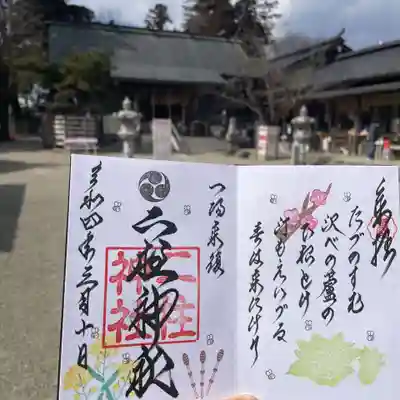 奉拝
たづのすむ
沢べの蘆の
下根とけ
汀もえいづる
春は来にけり
一陽来復
二柱神社
二柱
神社
令和四年三月十日